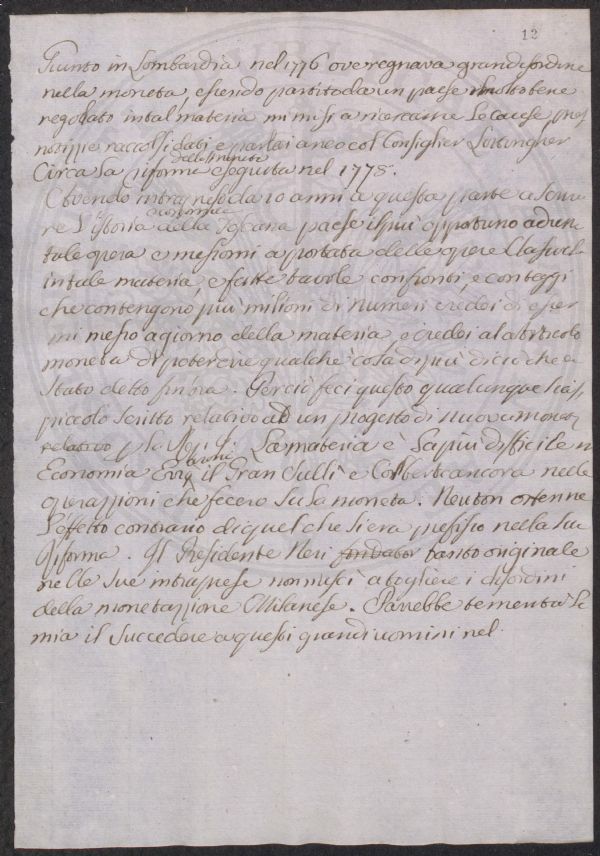 12
Giunto in Lombardia nel 1776 ove regnava gran disordine
nella moneta, essendo partito da un paese molto bene
regolato in tal materia mi misi a ricercarne le cause, presi
notizzie raccolsi dati e parlai anco col Consiglier Lottingher
delle monete
Circa la riforma eseguita nel 1778.
Avendo intrapreso da 10 anni a questa parte a scrive
economica
re l'istoria della Toscana paese il più opportuno ad una
tale opera e messomi a portata delle opere Classiche
in tale materia, e fatte tavole confronti, e conteggi
che contengono più milioni di numeri credei di esser
mi messo a giorno della materia, e credei al articolo
moneta di poter dire qualche cosa di più di ciò che è
stato detto sin'ora. Perciò feci questo qualunque siasi
piccolo scritto relativo ad un progetto di nuova moneta
relativo La materia è la più difficile in
Economia il Gran Sullì e Colbert ancora nelle
operazzioni che fecero su la moneta. Neuton ottenne
l'effetto contrario di quel che si era prefisso nella sua
riforma. Il Presidente Neri fondator tanto originale
nelle sue intraprese non riuscì a togliere i disordini
della monetazzione Milanese. Parrebbe temerità la
mia il succedere a questi grandi uomini nel